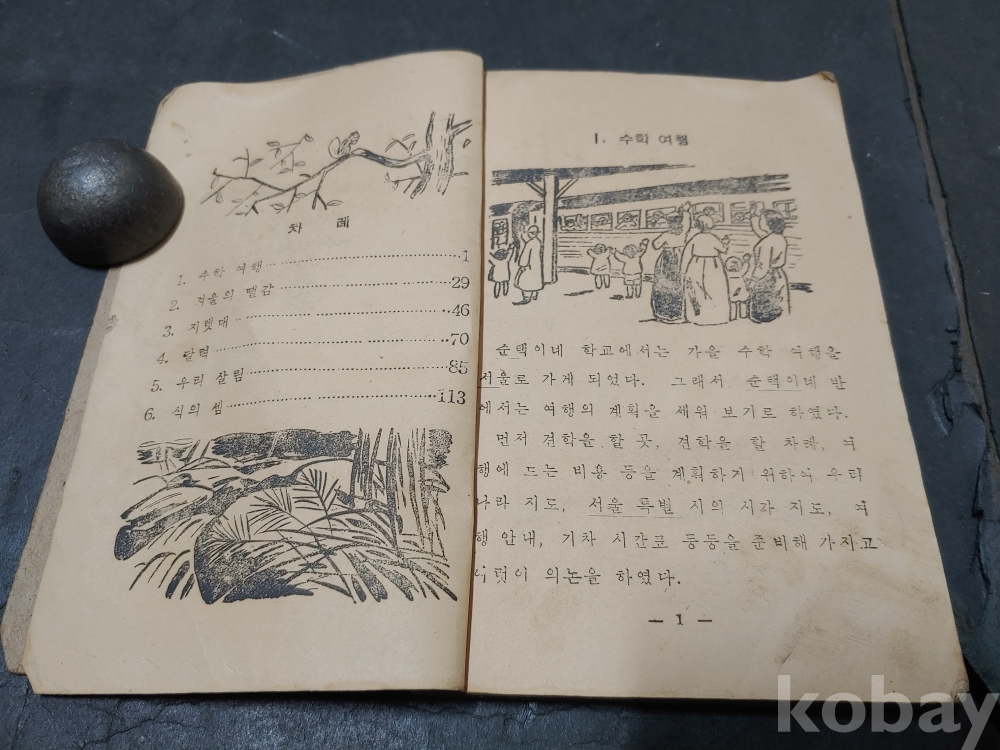 차 례
1. 수학 여행 1
2. 겨울의 땔감 29
3. 지렛대 46
4. 달력 70
5. 우리 살림 85
6. 식의 셈 113
1. 수학 여행
순택이네 학교에서는 가을 수학 여행을
서울로 가게 되었다. 그래서 순택이네 반
에서는 여행의 계획을 세워 보기로 하였다.
먼저 견학을 할 곳, 견학을 할 차례, 여
행에 드는 비용 등을 계획하기 위하여 우리
나라 지도, 서울 특별 시의 시가 지도, 여
행 안내, 기차 시간표 등등을 준비해 가지고
의논을 하였다.
— 1 —
kobay